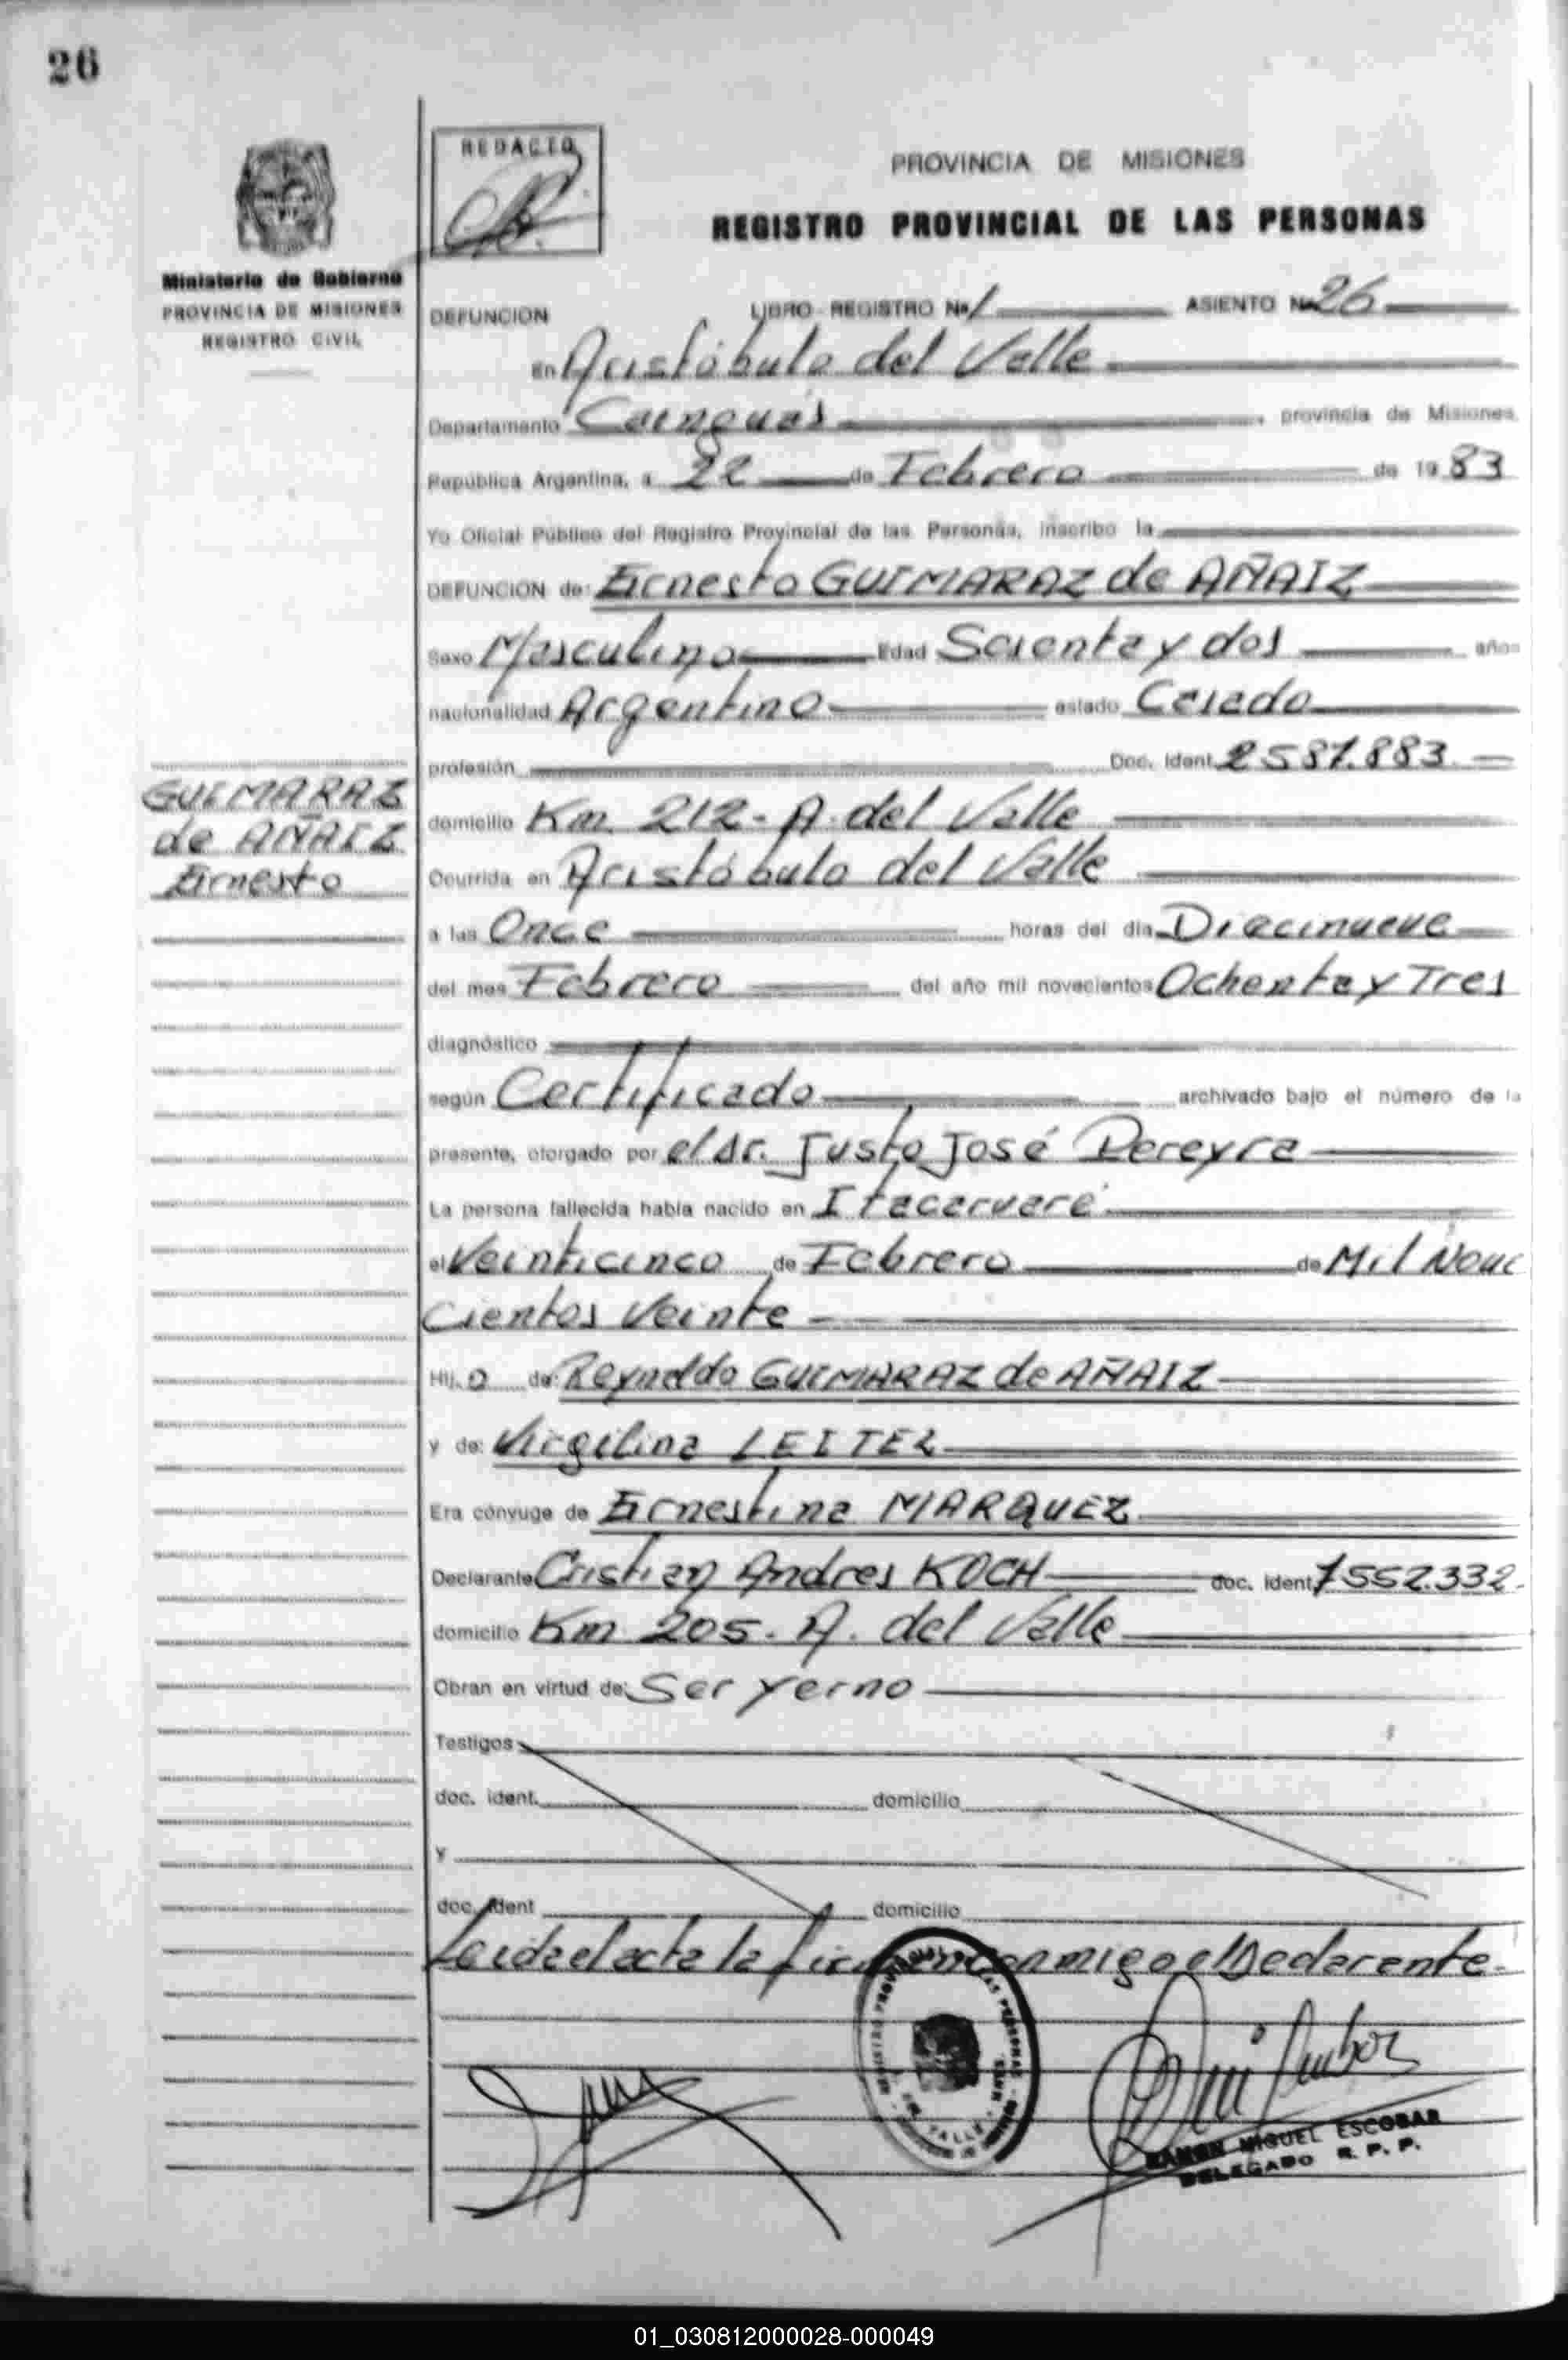 26
REDACTO
PROVINCIA DE MISIONES
REGISTRO PROVINCIAL DE LAS PERSONAS
Ministerio de Gobierno
PROVINCIA DE MISIONES
REGISTRO CIVIL
DEFUNCION LIBRO REGISTRO Nº 1 ASIENTO Nº 26
En Aristóbulo del Valle
Departamento Cainguás, provincia de Misiones
República Argentina, a 22 de Febrero de 1983
Yo Oficial Público del Registro Provincial de las Personas, inscribo la
DEFUNCION de: Ernesto GUIMARAZ de AÑAIZ
Sexo Masculino Edad Sesenta y dos años
nacionalidad Argentino estado Casado
profesión Doc. Ident. 2587.883.
GUIMARAZ
de AÑAIZ
Ernesto
domicilio Km. 212- A. del Valle
Ocurrida en Aristóbulo del Valle
a las Once horas del día Diecinueve
del mes Febrero del año mil novecientos Ochenta y Tres
diagnóstico
según Certificado archivado bajo el número de la
presente, otorgado por el dr. Justo José Pereyra
La persona fallecida había nacido en Itacaruaré
el Veinticinco de Febrero de Mil Nove
Cientos Veinte
Hijo de: Reynaldo GUIMARAZ de AÑAIZ
y de: Virgilina LEITEZ
Era cónyuge de Ernestina MARQUEZ
Declarante Cristian Andres KOCH doc. ident. 7552.332.
domicilio Km 205. A. del Valle
Obran en virtud de: Ser yerno
Testigos
doc. ident. domicilio
Y
doc. ident domicilio
Leida el acta la firma conmigo el Declarante.
RAMON MIGUEL ESCOBAR
DELEGADO R. P. P.
01_030812000028-000049